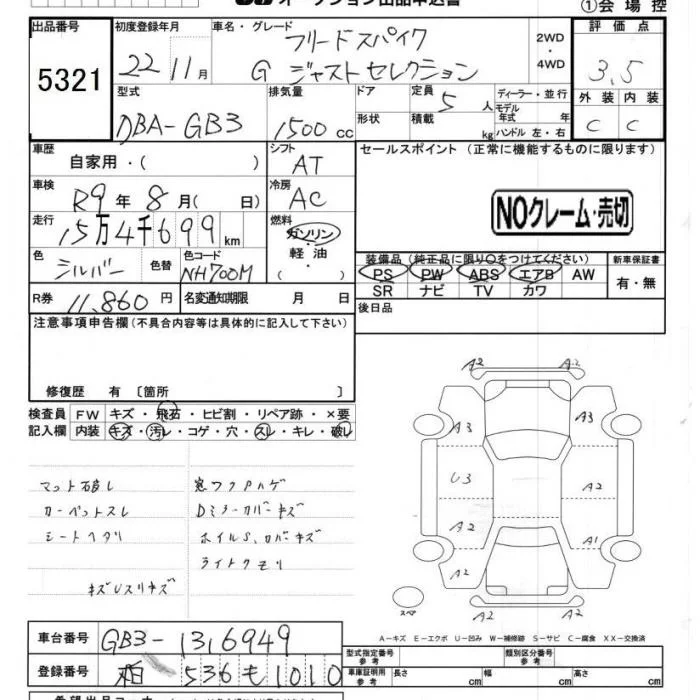 オークション出品申込書
①会場控
出品番号 5321
初度登録年月 22 11月
車名・グレード フリードスパイク
G ジャストセレクション
2WD・4WD
評価点 3.5
外装 内装
C C
型式 DBA-GB3
排気量 1500cc
ドア形状
定員 5人
積載 kg
ディーラー・並行
モデル年式 年
ハンドル 左・右
車歴 自家用・( )
シフト AT
セールスポイント (正常に機能するものに限ります)
車検 R9年8月( 日)
冷房 AC
NOクレーム・売切
走行 15万4千699km
燃料 ガソリン・軽油・( )
色 シルバー 色替
色コード NH700M
装備品 (純正品に限り○をつけてください)
PS PW ABS エアB AW
SR ナビ TV カワ
新車保証書 有・無
R券 11,860円
名変通知期限 月 日
後日品
注意事項申告欄(不具合内容等は具体的に記入して下さい)
修復歴 有 〔箇所 〕
検査員記入欄
FW キズ・飛石・ヒビ割・リペア跡・×要
内装 キズ・汚レ・コゲ・穴・スレ・キレ・破レ
マット破レ
カーペットスレ
シートヘタリ
キズUスリキズ
窓ワクPハゲ
Dミラーカバーキズ
ホイルS、カバーキズ
ライトクモリ
A2 A2
A3 A3
U3 A2
A2 A1
A2 A2
A2 A2
スペア
A-キズ E-エクボ U-凹み W-補修跡 S-サビ C-腐食 XX-交換済
車台番号 GB3-1316949
登録番号 柏 536 も 1010
型式指定番号 参考
類別区分番号 参考
車庫証明用 参考 長さ cm 幅 cm 高さ cm